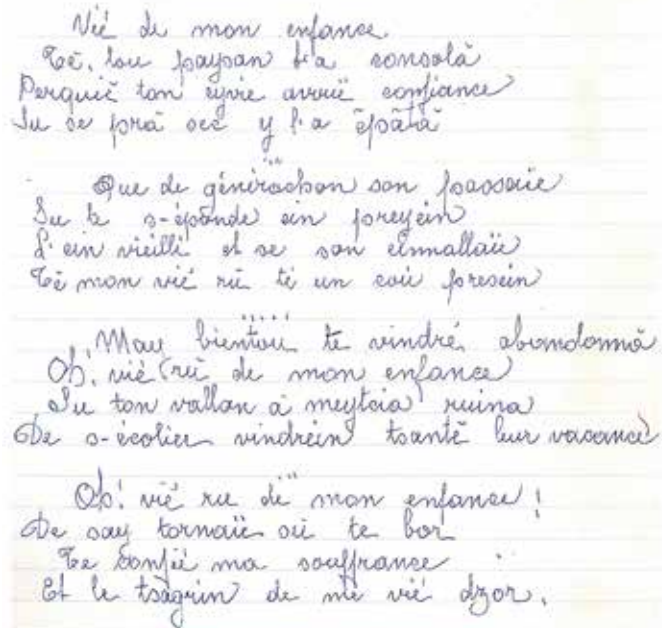 Vié de mon enfance
Té, lou paysan t'a consolà
Perquiè ton eyvie avouë confiance
Su se prà sec y l'a épàtà
Que de générachon son passaïe
Su le s-éponde ein preyein
L'ein vieilli et se son einnallaïe
Té mon vié rū ti un coú presein
.....
Mau bientoū te vindré abandonnà
Oh! vié rū de mon enfance
Su ton vallan à meytcia ruina
De s-écolier vindrein tsantè leur vacance
Oh! vié ru de mon enfance!
De say tornaïe où te bor
Te confié ma souffrance
Et le tsagrin de mè vié dzor.